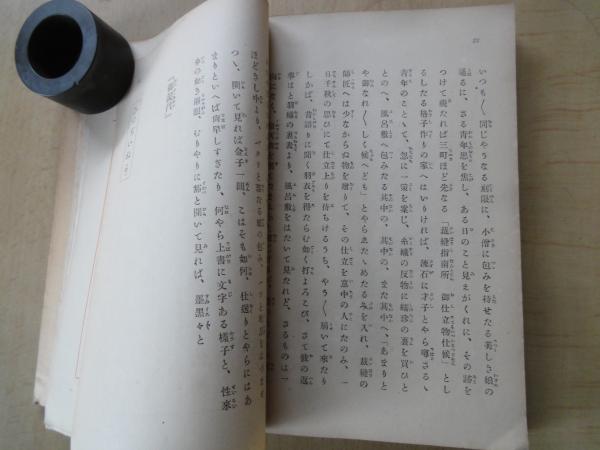 22
いつも〳〵同じやうなる刻限に、小僧に包みを持せたる美しき娘の
通るに、さる青年思を焦し、ある日のこと見えがくれに、その跡を
つけて覗たれば三町ほど先なる「裁縫指南所 御仕立物仕候」とし
るしたる格子作りの家へはいりければ、流石に才子とやら囃さるゝ
青年のことゝて、忽に一策を案じ、糸織の反物に瑤珍の裏を買ひと
とのへ、風呂敷へ包みたる其中の、其中の、まだ其中へ、「あまりと
や御なれ〳〵しく候へども」とやらゑたゝめたるふみを入れ、裁縫の
師匠へは少なからぬ物を贈りて、その仕立を意中の人にたのみ、一
日千秋の思ひにて仕立上りを待ちけるうち、やう〳〵届いて來たり
しかば、昔語りに聞く羽衣を得たらむ如く打よろこび、さて彼の返
事はと羽織の裏表より、風呂敷をはたいて見たれど、さるものは一
つゝ、開いて見れば金子一圓、こはそも如何、仕選りとやらにはあ
まりといへば尚早しすぎたり、何やら上書に文字ある樣子と、性來
の如き兩眼、むりやりに篩と開いて見れば、墨黑々と